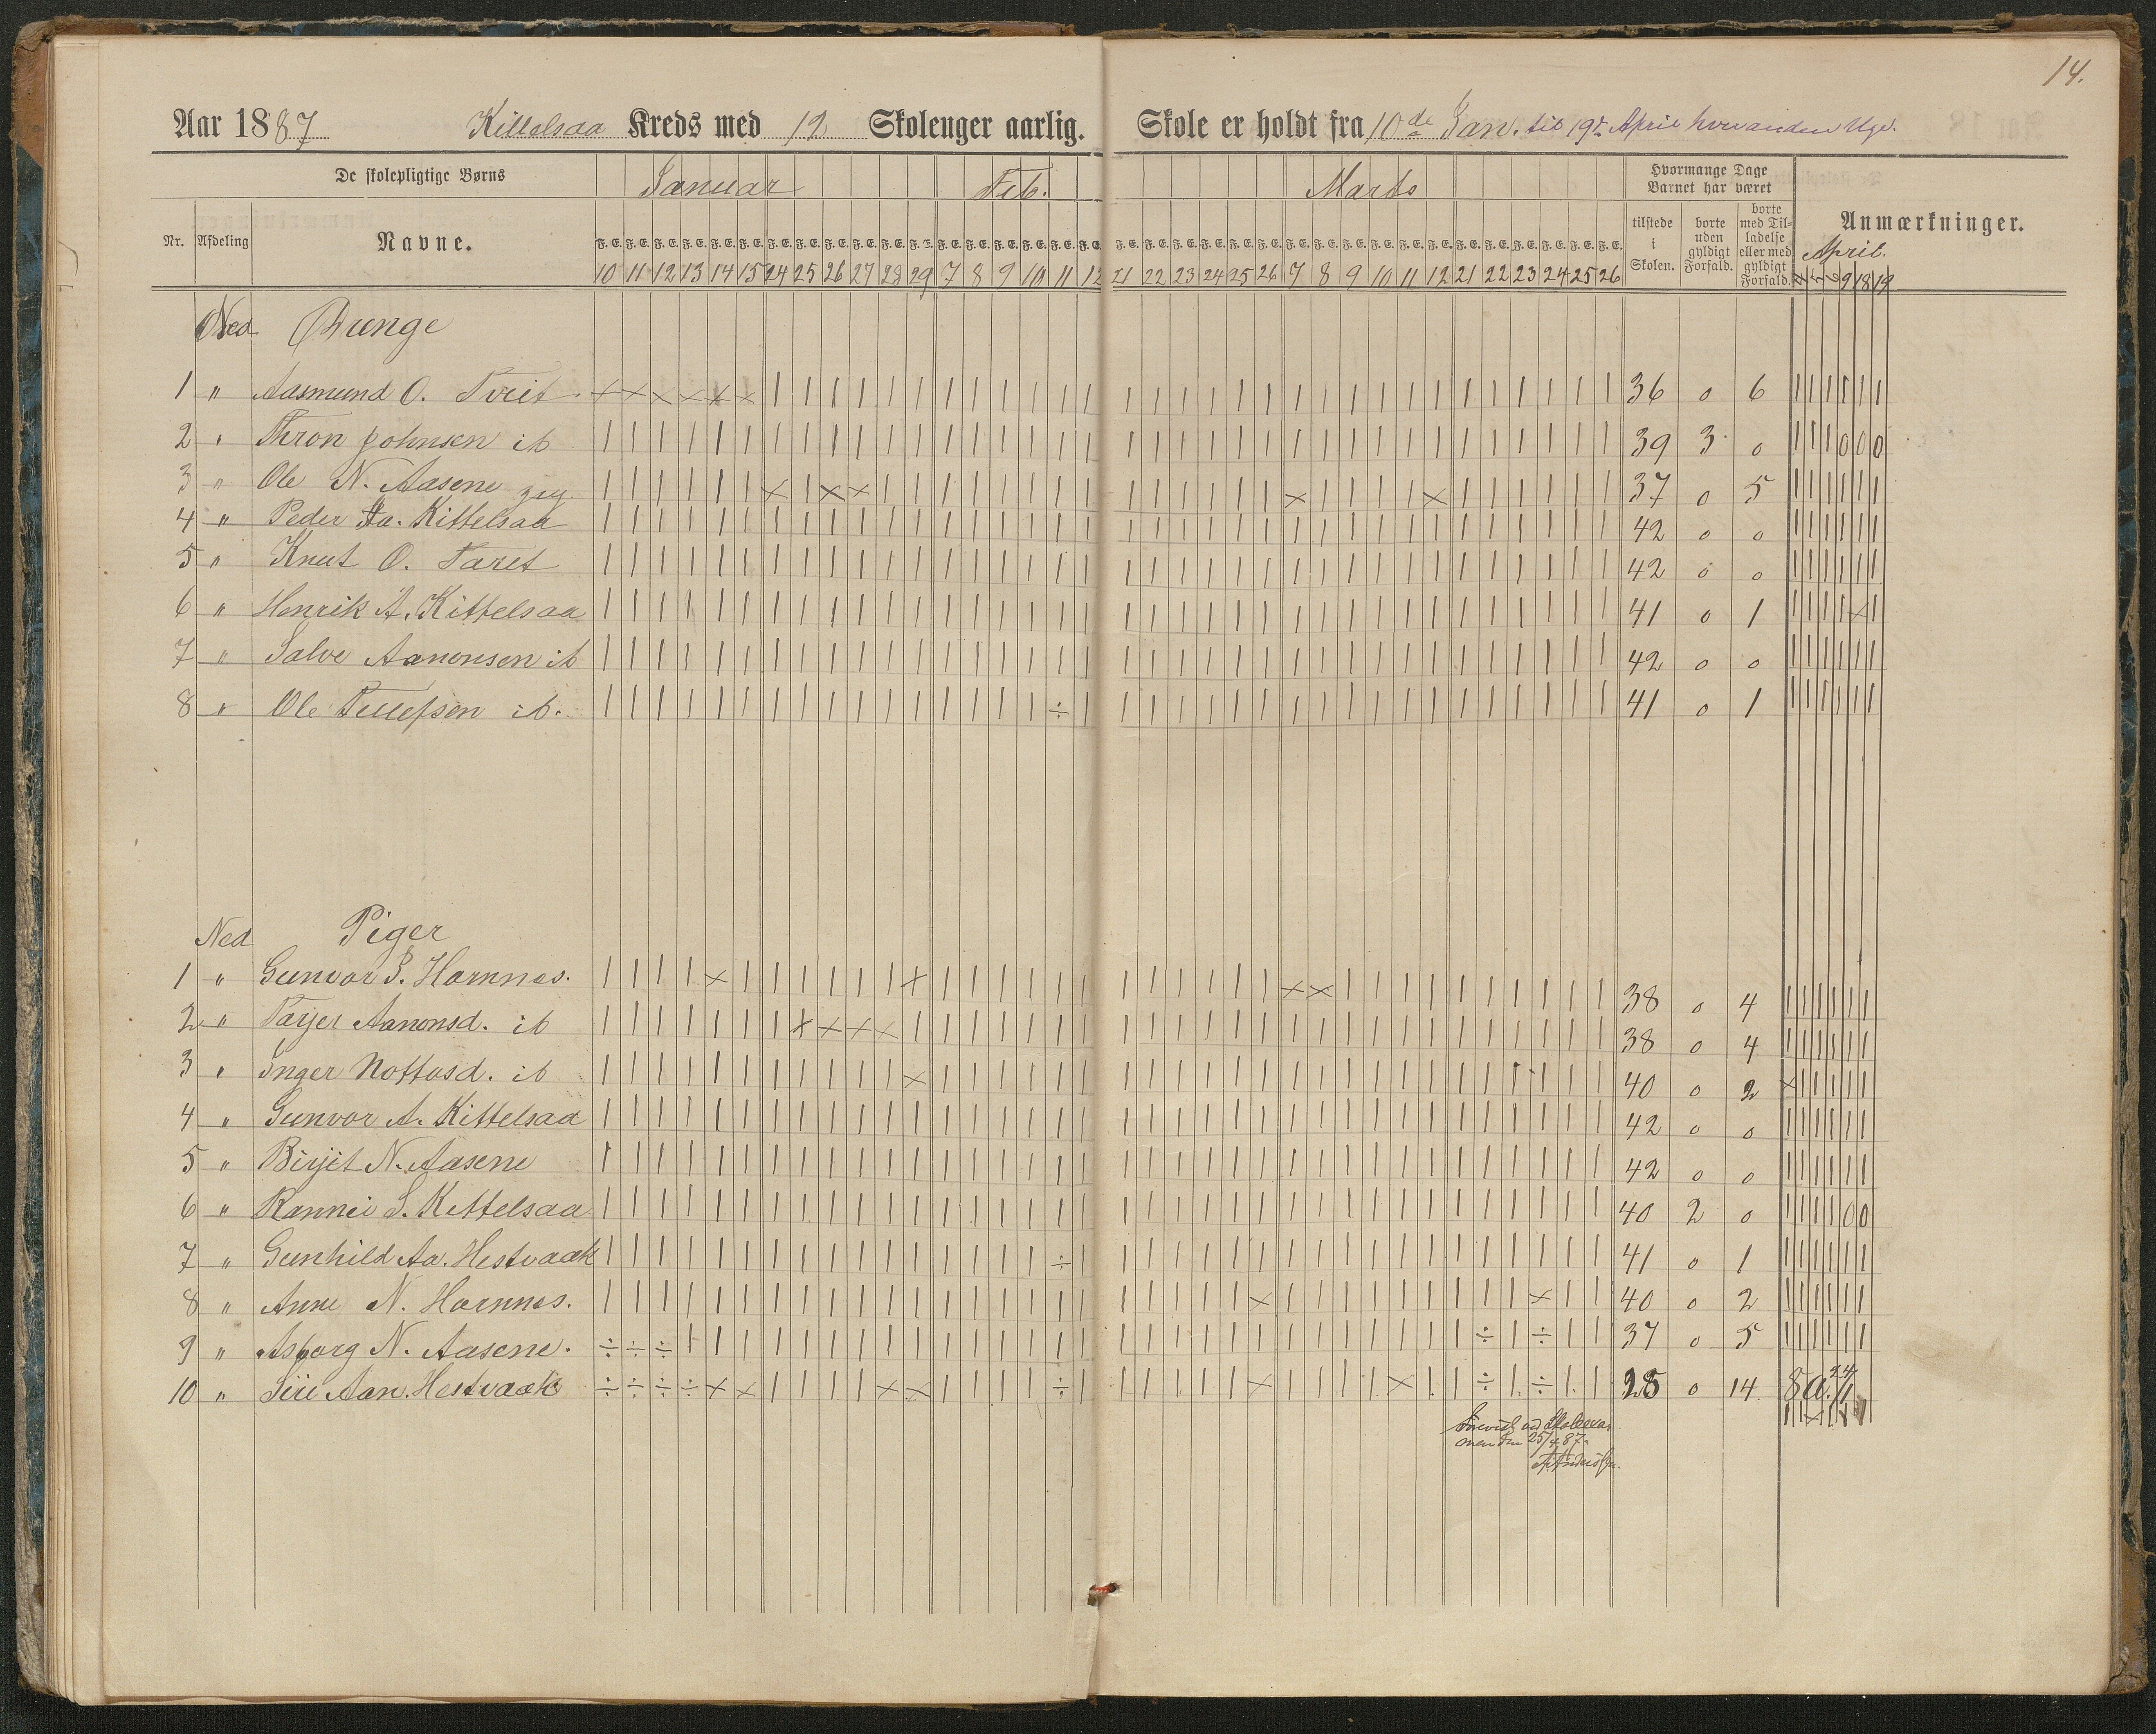 14.
Aar 1887 Kittelsaa Kreds med 12 Skoleuger aarlig. Skole er holdt fra 10de Jan. til 19de April hver anden Uge.
De skolepligtige Børns Januar Feb. Marts Hvormange Dage Barnet har været
Nr. Afdeling Navne. tilstede i Skolen. borte uden gyldigt Forfald. borte med Tilladelse eller med gyldigt Forfald. Anmærkninger.
April.
F. E. F. E. F. E. F. E. F. E. F. E. F. E. F. E. F. E. F. E. F. E. F. E. F. E. F. E. F. E. F. E. F. E. F. E. F. E. F. E. F. E. F. E. F. E. F. E. F. E. F. E. F. E. F. E. F. E. F. E. F. E. F. E. F. E. F. E. F. E. F. E.
10 11 12 13 14 15 24 25 26 27 28 29 7 8 9 10 11 12 21 22 23 24 25 26 7 8 9 10 11 12 21 22 23 24 25 26 9 18 19
Ned Drenge
1 " Aasmund O. Tveit × × × × × × | | | | | | | | | | | | | | | | | | | | | | | | | | | | | | 36 0 6 | | | | | |
2 " Thron Johnsen ib | | | | | | | | | | | | | | | | | | | | | | | | | | | | | | | | | | | | 39 3 0 | | | 0 0 0
3 " Ole N. Aasene | | | | | | × | × × | | | | | | | | | | | | | | × | | | | × | | | | | | 37 0 5 | | | | | |
4 " Peder Aa. Kittelsaa | | | | | | | | | | | | | | | | | | | | | | | | | | | | | | | | | | | | 42 0 0 | | | | | |
5 " Knut O. Taret | | | | | | | | | | | | | | | | | | | | | | | | | | | | | | | | | | | | 42 0 0 | | | | | |
6 " Henrik A. Kittelsaa | | | | | | | | | | | | | | | | | | | | | | | | | | | | | | | | | | | | 41 0 1 | | | | × |
7 " Salve Aanonsen ib | | | | | | | | | | | | | | | | | | | | | | | | | | | | | | | | | | | | 42 0 0 | | | | | |
8 " Ole Tellefsen ib. | | | | | | | | | | | | | | | | ÷ | | | | | | | | | | | | | | | | | | | 41 0 1 | | | | | |
Ned Piger
1 " Gunvor S. Hornnes. | | | | × | | | | | | × | | | | | | | | | | | | × × | | | | | | | | | | 38 0 4 | | | | | |
2 " Tarjer Aanonsd. ib | | | | | | | × × × × | | | | | | | | | | | | | | | | | | | | | | | | | 38 0 4 | | | | | |
3 " Inger Nottosd. ib | | | | | | | | | | | × | | | | | | | | | | | | | | | | | | | | | | | | 40 0 2 × | | | | |
4 " Gunvor A. Kittelsaa | | | | | | | | | | | | | | | | | | | | | | | | | | | | | | | | | | | | 42 0 0 | | | | | |
5 " Birjit N. Aasene | | | | | | | | | | | | | | | | | | | | | | | | | | | | | | | | | | | | 42 0 0 | | | | | |
6 " Rannei S. Kittelsaa | | | | | | | | | | | | | | | | | | | | | | | | | | | | | | | | | | | | 40 2 0 | | | | 0 0
7 " Gunhild Aa. Hestvaak | | | | | | | | | | | | | | | | ÷ | | | | | | | | | | | | | | | | | | | 41 0 1 | | | | | |
8 " Anne N. Hornnes. | | | | | | | | | | | | | | | | | | | | | | | × | | | | | | | | | × | | 40 0 2 | | | | | |
9 " Asborg N. Aasene. ÷ ÷ ÷ | | | | | | | | | | | | | | | | | | | | | | | | | | | | ÷ | ÷ | | 37 0 5 | | | | | |
10 " Siri Aan. Hestvaak ÷ ÷ ÷ ÷ × × | | | | × × | | | | ÷ | | | | | | × | | | | × | | ÷ | ÷ | | 28 0 14
men den 25/4 87.